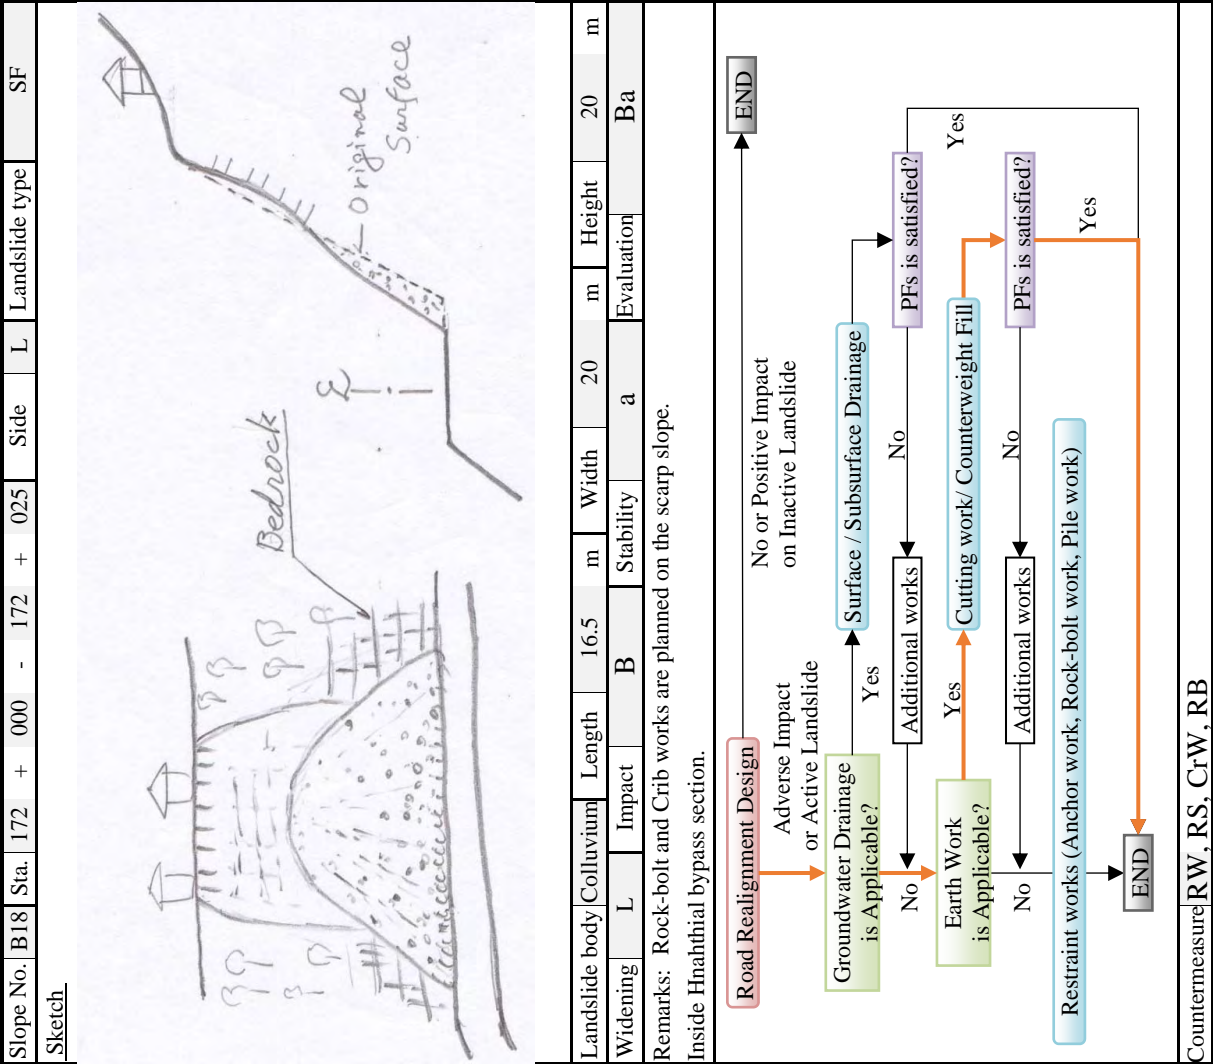 Slope No. B18 Sta. 172 + 000 - 172 + 025 Side L Landslide type SF
Sketch
Bedrock
Original
Surface
Landslide body Colluvium Length 16.5 m Width 20 m Height 20 m
Widening L Impact B Stability a Evaluation Ba
Remarks: Rock-bolt and Crib works are planned on the scarp slope.
Inside Hnahthial bypass section.
Road Realignment Design
No or Positive Impact
on Inactive Landslide
END
Adverse Impact
or Active Landslide
Groundwater Drainage
is Applicable?
Yes
Surface / Subsurface Drainage
PFs is satisfied?
Yes
No
Additional works
No
Earth Work
is Applicable?
Yes
Cutting work/ Counterweight Fill
PFs is satisfied?
Yes
No
Additional works
No
Restraint works (Anchor work, Rock-bolt work, Pile work)
END
Countermeasure RW, RS, CrW, RB